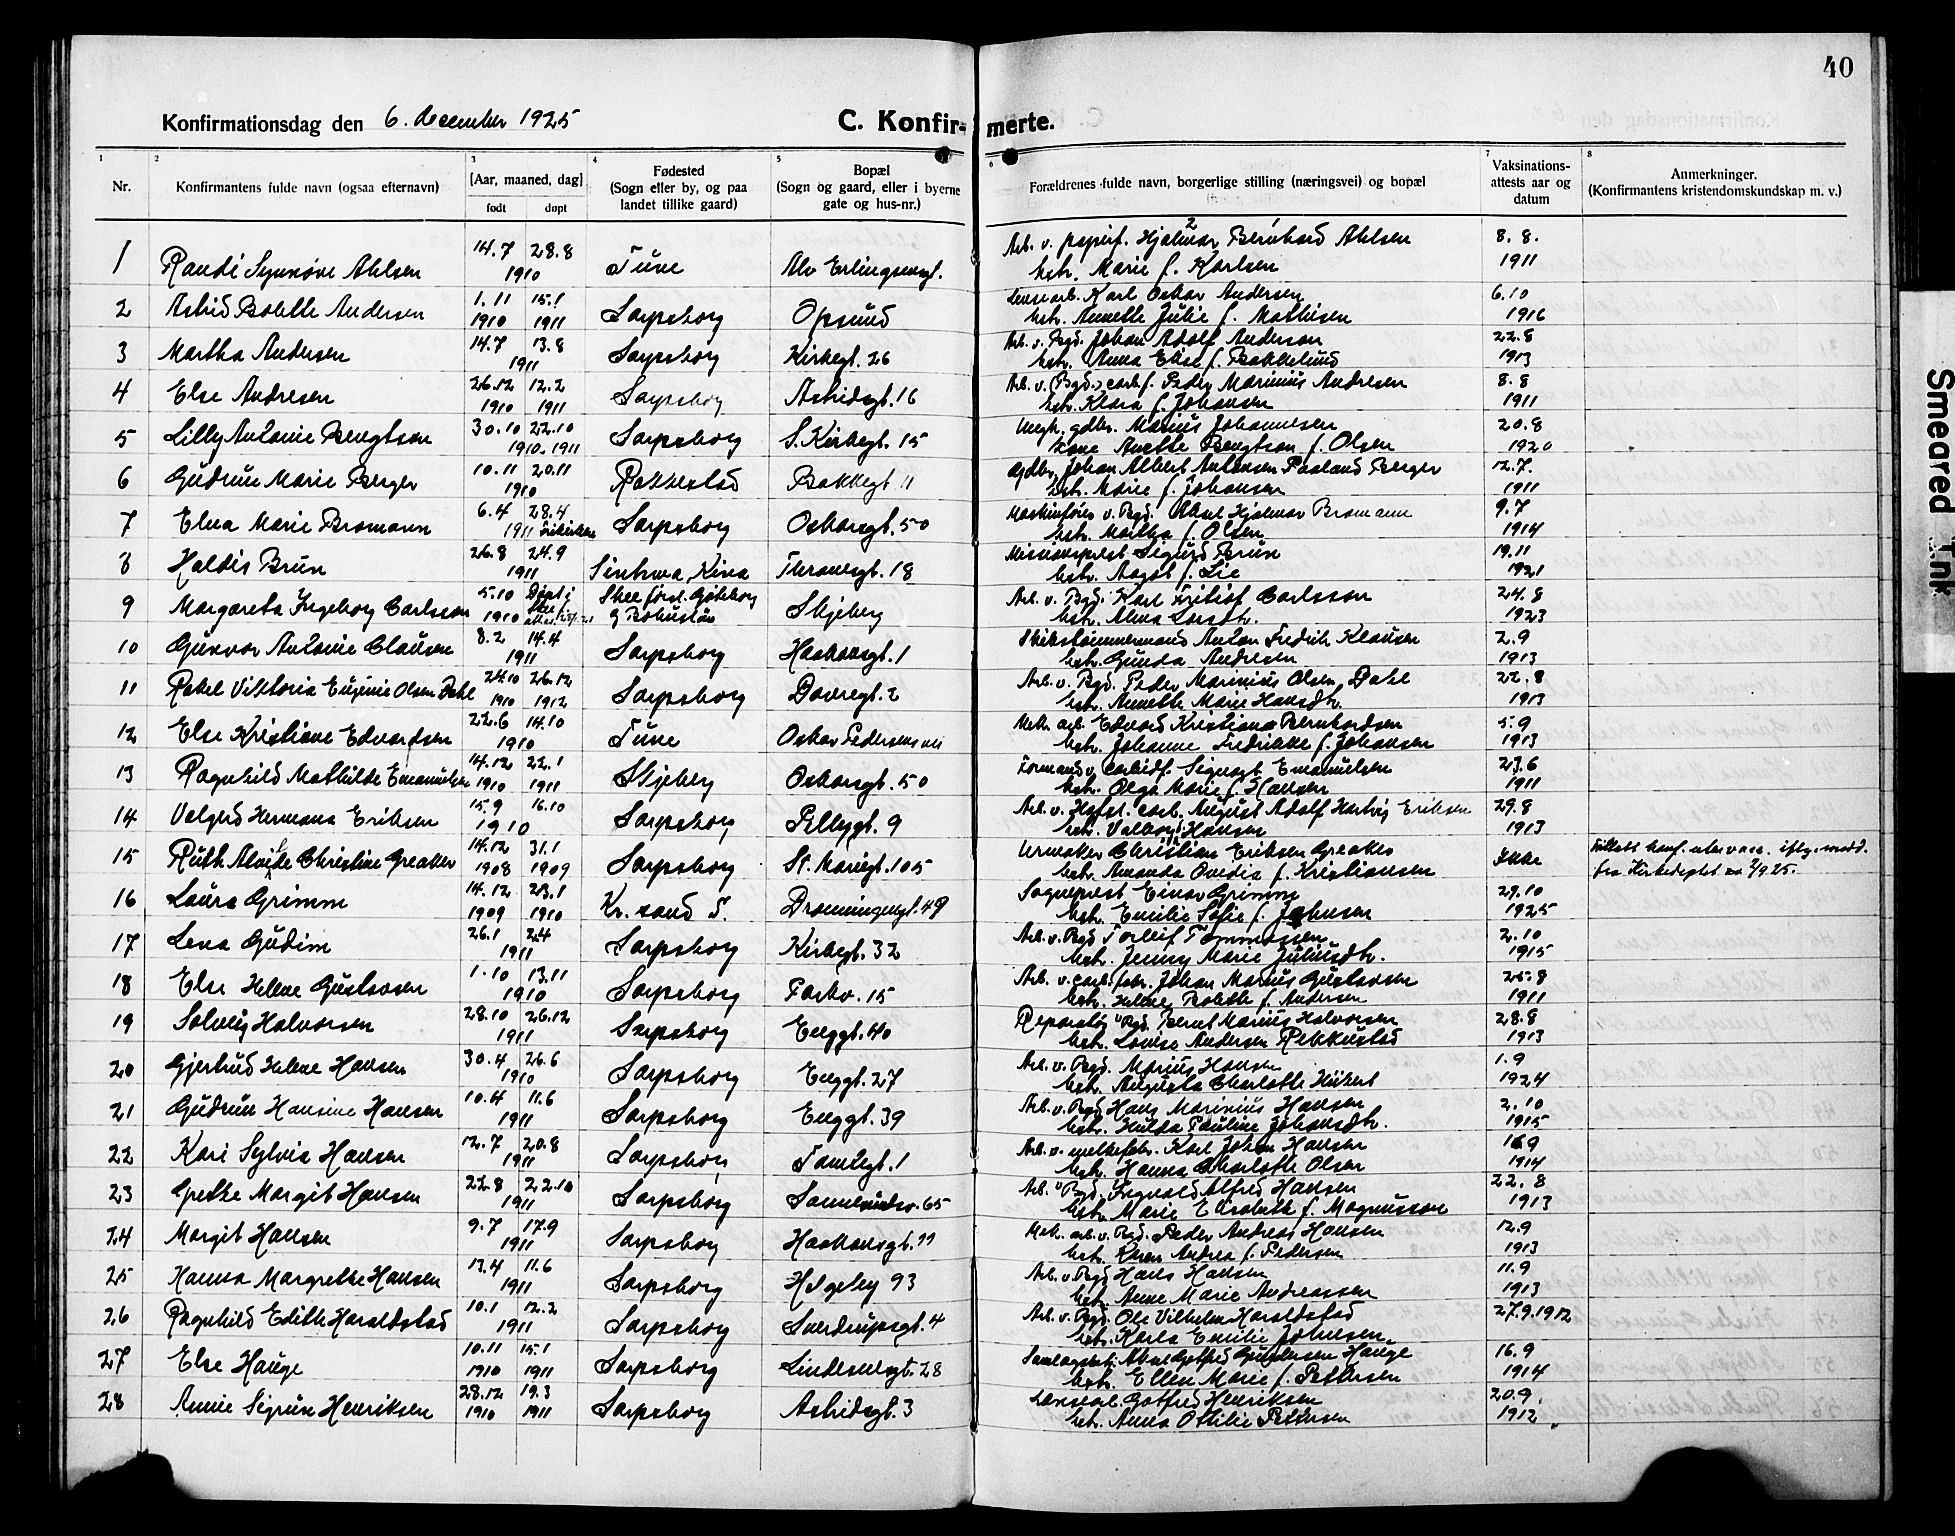 40
Konfirmationsdag den 6. december 1925
C. Konfirmerte.
1 2 3 4 5 6 7 8
Nr.
Konfirmantens fulde navn (ogsaa efternavn)
[Aar, maaned, dag]
født døpt
Fødested
(Sogn eller by, og paa
landet tillike gaard)
Bopæl
(Sogn og gaard, eller i byerne
gate og hus-nr.)
Forældrenes fulde navn, borgerlige stilling (næringsvei) og bopæl
Vaksinations-
attests aar og
datum
Anmerkninger.
(Konfirmantens kristendomskundskap m. v.)
1 Randi Synnøve Ahlsen 14.7 28.8 1910 Tune Alv Erlingsensgt. Arb. v. papirf. Hjalmar Bernhard Ahlsen 8.8.
hstr. Marie f. Karlsen 1911
2 Astrid Bolette Andersen 1.11 1910 15.1 1911 Sarpsborg Opsund Lensearb. Karl Oskar Andersen 6.10
hstr. Annette Julie f. Mathisen 1916
3 Martha Andersen 14.7 13.8 1911 Sarpsborg Kirkegt. 26 Arb. v. Bgd. Johan Adolf Anderson 22.8
hstr. Anna Elise f. Bakkelund 1913
4 Else Andresen 26.12 1910 12.2 1911 Sarpsborg Astridsgt. 16 Arb. v. (Bgd.) carb.f. Peder Marinius Andresen 8.8
hstr. Klara f. Johansen 1911
5 Lilly Antonie Bengtson 30.10 22.10 1910. 1911 Sarpsborg S. Kirkegt. 15 Ungk. gdbr. Marius Johannesen 20.8
Anette Bengtson f. Olsen 1920
6 Gudrun Marie Berger 10.11 20.11 1910 Rakkestad Bakkegt 11 Gdbr. Johan Albert Antonsen Paaland Berger 12.7.
hstr. Marie f. Johansen 1911
7 Elna Marie Bromann 6.4 28.4 1911 Sarpsborg Oskarsgt. 50 Maskinfører v. Bgd. Aksel Hjalmar Bromann 9.7
hstr. Martha f. Olsen 1914
8 Haldis Brun 26.8 24.9 1911 Sinhwa, Kina Throndsgt. 18 Missionsprest Sigurd Brun 19.11
hstr. Aagot f. Lie 1921
9 Margareta Ingeborg Carlsson 5.10 1910 Døpt i Skee Skee førs. Gøteborg
og Bohuslän Skjeberg Arb. v. Bgd. Karl Fritiof Carlsson 24.8
hstr. Alma 1923
10 Gunvor Antonie Clausen 8.2 14.4 1911 Sarpsborg Haakonsgt. 1 Skibstømmermand Anton Fredrik Klausen 2.9
hstr. Gunda Andresen 1913
11 Rakel Viktoria Eugenie Olsen Dahl 24.10 1910 26.12 1912 Sarpsborg Dovregt. 2 Arb. v. Bgd. Peder Marinius Olsen, Dahl 22.8
hstr. Annette Marie Hansdtr. 1913
12 Else Kristiane Edvardsen 22.6 14.10 1910 Tune Oskar Pedersens vei Mek. arb. Edvard Kristian Bernhardsen 5.9
hstr. Johanne Fredrikke f. Johansen 1913
13 Ragnhild Mathilde Emanuelsen 14.12 1910 22.1 1911 Skjeberg Oskarsgt. 50 Formand v. carbidf. Signart Emanuelsen 23.6
hstr. Olga Marie f. Hansen 1911
14 Valgerd Hermana Eriksen 15.9 16.10 1910 Sarpsborg Pellygt. 9 Arb. v. Hafsl. carb. August Adolf Hartvig Eriksen 29.8
hstr. Valborg f. Hansen 1913
15 Ruth Alvilde Christine Greaker 14.12 1908 31.1 1909 Sarpsborg St. Mariegt. 105 Urmaker Christian Eriksen Greaker
hstr. Amanda Ovidia f. Kristiansen Ikke Tillatt konf. uten vacc. iflg. medd.
fra Kirkedeptet 2/9 25.
16 Laura Grimm 14.12 1909 23.1 1910 Kr.sand S. Dronningensgt. 49 Sogneprest Einar Grimm 29.10
hstr. Emilie Sofie f. Johnsen 1925
17 Lena Gudim 26.1 2.4 1911 Sarpsborg Kirkegt. 32 Arb. v. Bgd Torleif Tommassen 2.10
hstr. Jenny Marie Juliusdtr. 1915
18 Else Helene Gustavsen 1.10 13.11 1910 Sarpsborg Parkv. 15 Arb. v. carb. fabr. Johan Marius Gustavsen 25.8
hstr. Helene Bolette f. Andersen 1911
19 Solveig Halvorsen 28.10 26.12 1911 Sarpsborg Enggt. 40 Reparatør v Bgd. Bernt Marius Halvorsen 28.8
hstr. Lovise Andersen Rekkustad 1913
20 Gjertrud Helene Hansen 30.4 26.6 1910 Sarpsborg Enggt. 27 Arb. v. Bgd. Marius Hansen 1.9
hstr. Augusta Charlotte Hübert 1924
21 Gudrun Hansine Hansen 10.4 11.6 1911 Sarpsborg Enggt. 39 Arb. v. Bgd Hans Marinius Hansen 2.10
hstr. Hulda Pauline Johansdtr. 1915
22 Kari Sylvia Hansen 12.7 20.8 1911 Sarpsborg Tomtegt. 1 Arb. v. melkefabr. Karl Johan Hansen 16.9
hstr. Hanna Charlotte Olsen 1914
23 Grethe Margit Hansen 22.8 22.10 1911 Sarpsborg Sannesundsv. 65 Arb. v Bgd. Ingvald Alfred Hansen 22.8
hstr. Marie Elisabeth f. Magnusson 1913
24 Margit Hansen 9.7 17.9 1911 Sarpsborg Haakonsgt. 11 Mek. arb. v. Bgd. Peder Andreas Hansen 12.9
hstr. Karen Andrea f. Pedersen 1913
25 Hanna Margrethe Hansen 13.4 11.6 1911 Sarpsborg Helgeby 93 Arb. v Bgd Hans Hansen 11.9
hstr. Anne Marie Andreassen 1913
26 Ragnhild Edith Haraldstad 10.1 12.2 1911 Sarpsborg Sverdrupsgt. 4 Arb. v. Bgd. Ole Vilhelm Haraldstad 27.9.1912
hstr. Karla Emilie Johnsen.
27 Else Hauge 10.11 1910 15.1 1911 Sarpsborg Lindesnesgt. 28 Aksel Gotfred Gundersen Hauge 16.9
hstr. Ellen Marie f. Pettersen 1914
28 Annie Sigrun Henriksen 28.12 1910 19.3 1911 Sarpsborg Astridsgt. 3 Gotfred Henriksen 20.9
hstr. Anna Ottilie Pettersen 1912
Smeared Ink